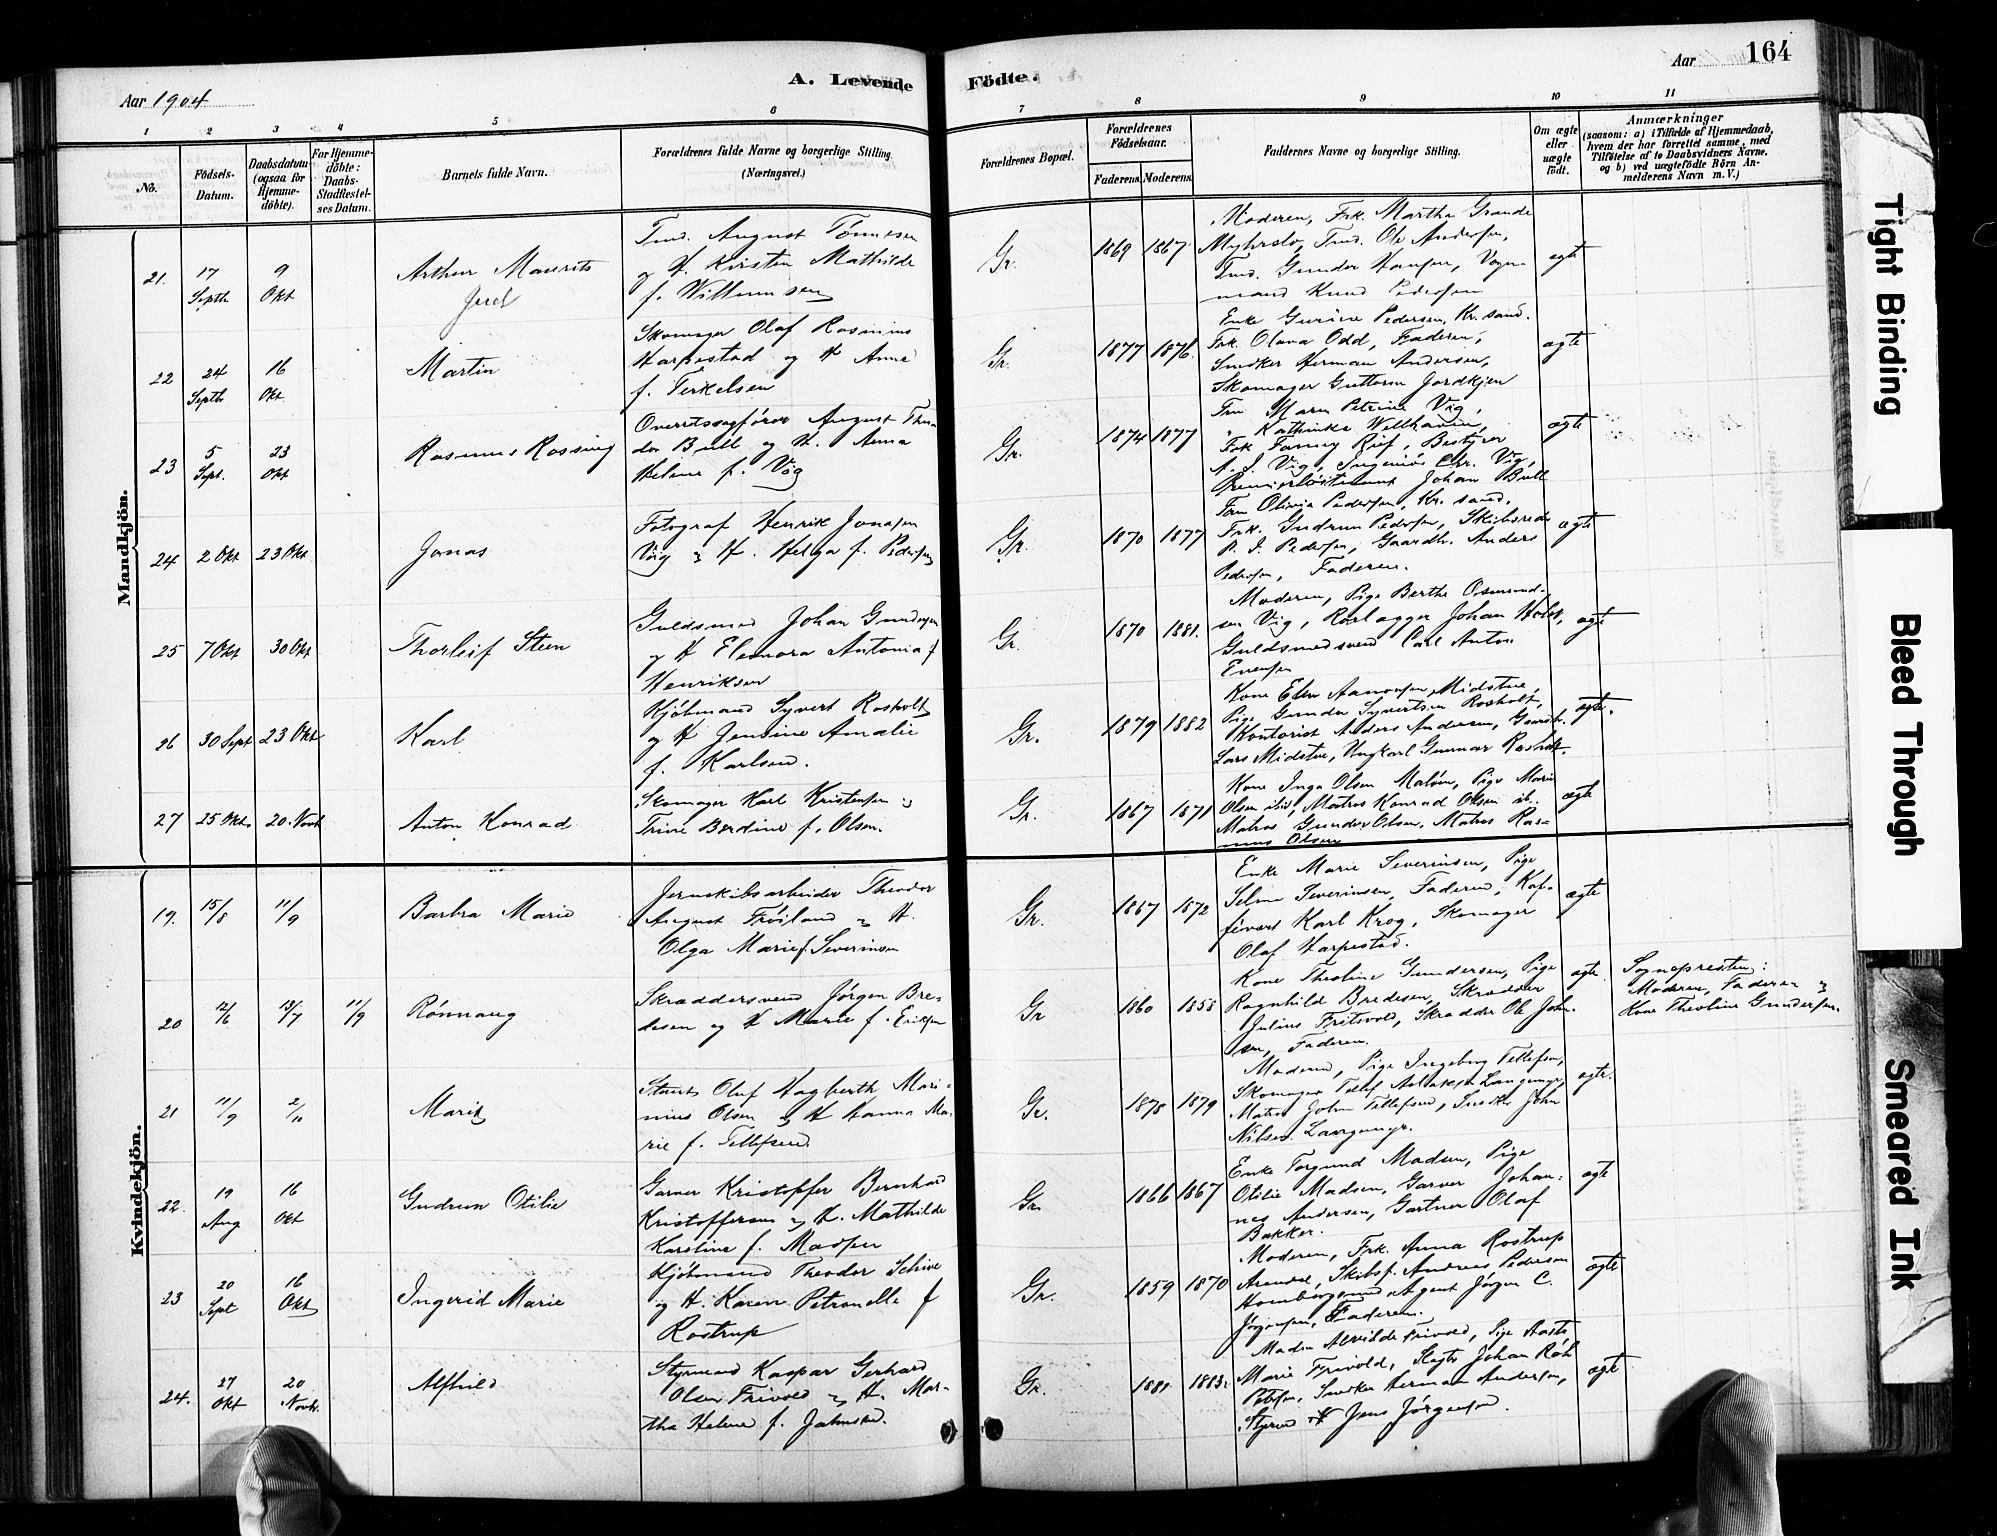 Aar 1904
A. Levende
Födte.
Aar
164
1
2
3
4
5
6
7
8
9
10
11
No.
Födsels-
Datum.
Daabsdatum
(ogsaa for
Hjemme-
döbte).
For Hjemme-
döbte:
Daabs-
Stadfæstel-
ses Datum.
Barnets fulde Navn.
Forældrenes fulde Navne og borgerlige Stilling
(Næringsvei.)
Forældrenes Bopæl.
Forældrenes
Födselsaar.
Faderens
Moderens.
Faddernes Navne og borgerlige Stilling.
Om ægte
eller
uægte
födt.
Anmærkninger
(saasom: a) i Tilfælde af Hjemmedaab,
hvem der har forrettet samme, med
Tilföielse af to Daabsvidners Navne,
og b) ved uægtefödte Börn An-
melderens Navn m. V.)
Mandkjön.
21.
17
Septb
9
Okt
Arthur Maurits
Juel
Tmd. August Tönnesen
og H. Kirsten Mathilde
f. Willumsen
Gr.
1869
1867
Moderen, Frk. Martha Grande
Tmd. Ole Andersen,
Tmd. Gunder Hansen, Vogn-
mand Knud Pedersen
ægte
22
24
Septb
16
Okt
Martin
Skomager Olaf Rasmus
Harpestad og H Anne
f. Terkelsen
Gr.
1877
1876.
Enke Gurine Pedersen, Kr.sand.
Frk. Olava Odd, Faderen,
Snedker Herman Andersen,
Skomager Guttorm Jordkjen
ægte
23
5
Sept.
23
Okt
Rasmus Rossing
Overretssagförer August Theo
dor Bull og H. Anna
Helene f. Vig
Gr.
1874
1877
Fru Maren Petrine Vig,
" Kathinka Wellhaven,
Frk Fanny Rief, Bestyrer
A. J. Vig, Ingeniör Chr. Vig,
Premierlöitenant Johan Bull
ægte
24
2 Okt
23 Okt
Jonas
Fotograf Henrik Jonasen
Vig og H. Helga f. Pedersen
Gr.
1870
1877
Fru Olivia Pedersen, Kr. sand.
Frk. Gudrun Pedersen, Skibsrede
P. J. Pedersen, Gaardb. Anders
Pedersen, Faderen.
ægte
25
7 Okt
30 Okt
Thorleif Steen
Guldsmed Johan Gundersen
og H Eleonora Antonia f
Henriksen
Gr.
1870
1881.
Moderen, Pige Berthe Osmund-
sen Vig, Johan Holst,
Guldsmedsvend Carl Anton
Evensen
ægte
26
30 Sept
23 Okt
Karl
Kjöbmand Syvert Rosholt
og H Jensine Amalie
f. Karlsen.
Gr.
1879
1882
Kone Elen Aanonsen Midstue,
Pige Gunda Syvertsen Rosholt,
Kontorist Anders Andersen, Gaardb.
Lars Midstue, Ungkarl Gunnar Rosholt.
ægte.
27
25 Okt
20. Novb
Anton Konrad
Skomager Karl Kristensen og
Trine Berdine f. Olsen.
Gr.
1867
1871
Kone Inga Olsen Malöen, Pige Marie
Olsen ibid, Matros Konrad Olsen ib.
Matros Gunder Olsen, Matros Ras-
mus Olsen
ægte
Kvindekjön.
19.
15/8
11/9
Barbra Marie
Jernskibsarbeider Theodor
August Fröiland og H.
Olga Marie f. Severinsen
Gr.
1867
1872
Enke Marie Severinsen, Pige
Selma Severinsen, Faderen, Kaf-
févært Karl Krog, Skomager
Olaf Harpestad.
ægte
20
12/6
13/7
11/9
Rönnaug
Skræddersvend Jörgen Bre-
desen og H Marie f. Eriksen
Gr
1860
1858
Kone Theoline Gundersen, Pige
Ragnhild Bredesen, Skrædder
Julius Fritsvold, Skrædder Ole John-
sen, Faderen.
ægte
Sognepresten:
Moderen, Faderen og
Kone Theoline Gundersen.
21
11/9
2/10
Marie
Stuert Oluf Hagberth Mari-
nius Olsen og H Hanna Ma-
rie f. Tellefsen.
Gr.
1878
1879
Moderen, Pige Ingeborg Tellefsen,
Skomager Tellef Langemyr,
Matros John Tellefsen, Snedker John
Nilsen Langemyr.
ægte.
22.
19
Aug
16
Okt
Gudrun Otilie
Garver Kristoffer Bernhard
Kristoffersen og H. Mathilde
Karoline f. Madsen
Gr.
1866
1867
Enke Torgund Madsen, Pige
Otilie Madsen, Garver Johan-
nes Andersen, Gartner Olaf
Bakker.
ægte
23
20
Sept
16
Okt
Ingerid Marie
Kjöbmand Theodor Schive
og H. Karen Petronelle f
Rostrup
Gr.
1859
1870
Moderen, Frk. Anna Rostrup
Arendal, Skibsf. Andreas Pedersen
Agent Jörgen C.
Jörgensen, Faderen.
ægte
24.
27
Okt
20
Novb.
Alfhild
Styrmand Kaspar Gerhard
Olsen Frivold og H. Mar-
tha Helene f. Jahnsen.
Gr.
1881
1883.
Madm Alvilde Frivold, Pige Aasta
Marie Frivold, Slagter Johan
Petersen, Snedker Herman Andersen,
Styrmd Jens Jörgensen.
ægte
Tight Binding
Bleed Through
Smeared Ink